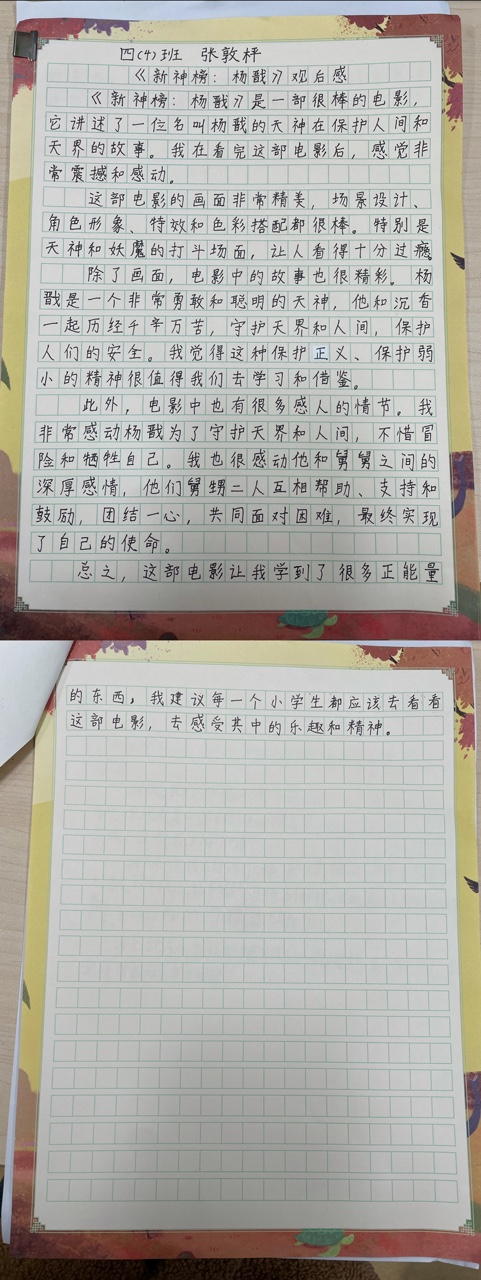 四(4)班 张敦枰
《新神榜：杨戬》观后感
《新神榜：杨戬》是一部很棒的电影，
它讲述了一位名叫杨戬的天神在保护人间和
天界的故事。我在看完这部电影后，感觉非
常震撼和感动。
这部电影的画面非常精美，场景设计、
角色形象、特效和色彩搭配都很棒。特别是
天神和妖魔的打斗场面，让人看得十分过瘾。
除了画面，电影中的故事也很精彩。杨
戬是一个非常勇敢和聪明的天神，他和沉香
一起历经千辛万苦，守护天界和人间，保护
人们的安全。我觉得这种保护正义、保护弱
小的精神很值得我们去学习和借鉴。
此外，电影中也有很多感人的情节。我
非常感动杨戬为了守护天界和人间，不惜冒
险和牺牲自己。我也很感动他和舅舅之间的
深厚感情，他们舅甥二人互相帮助、支持和
鼓励，团结一心，共同面对困难，最终实现
了自己的使命。
总之，这部电影让我学到了很多正能量
的东西，我建议每一个小学生都应该去看看
这部电影，去感受其中的乐趣和精神。